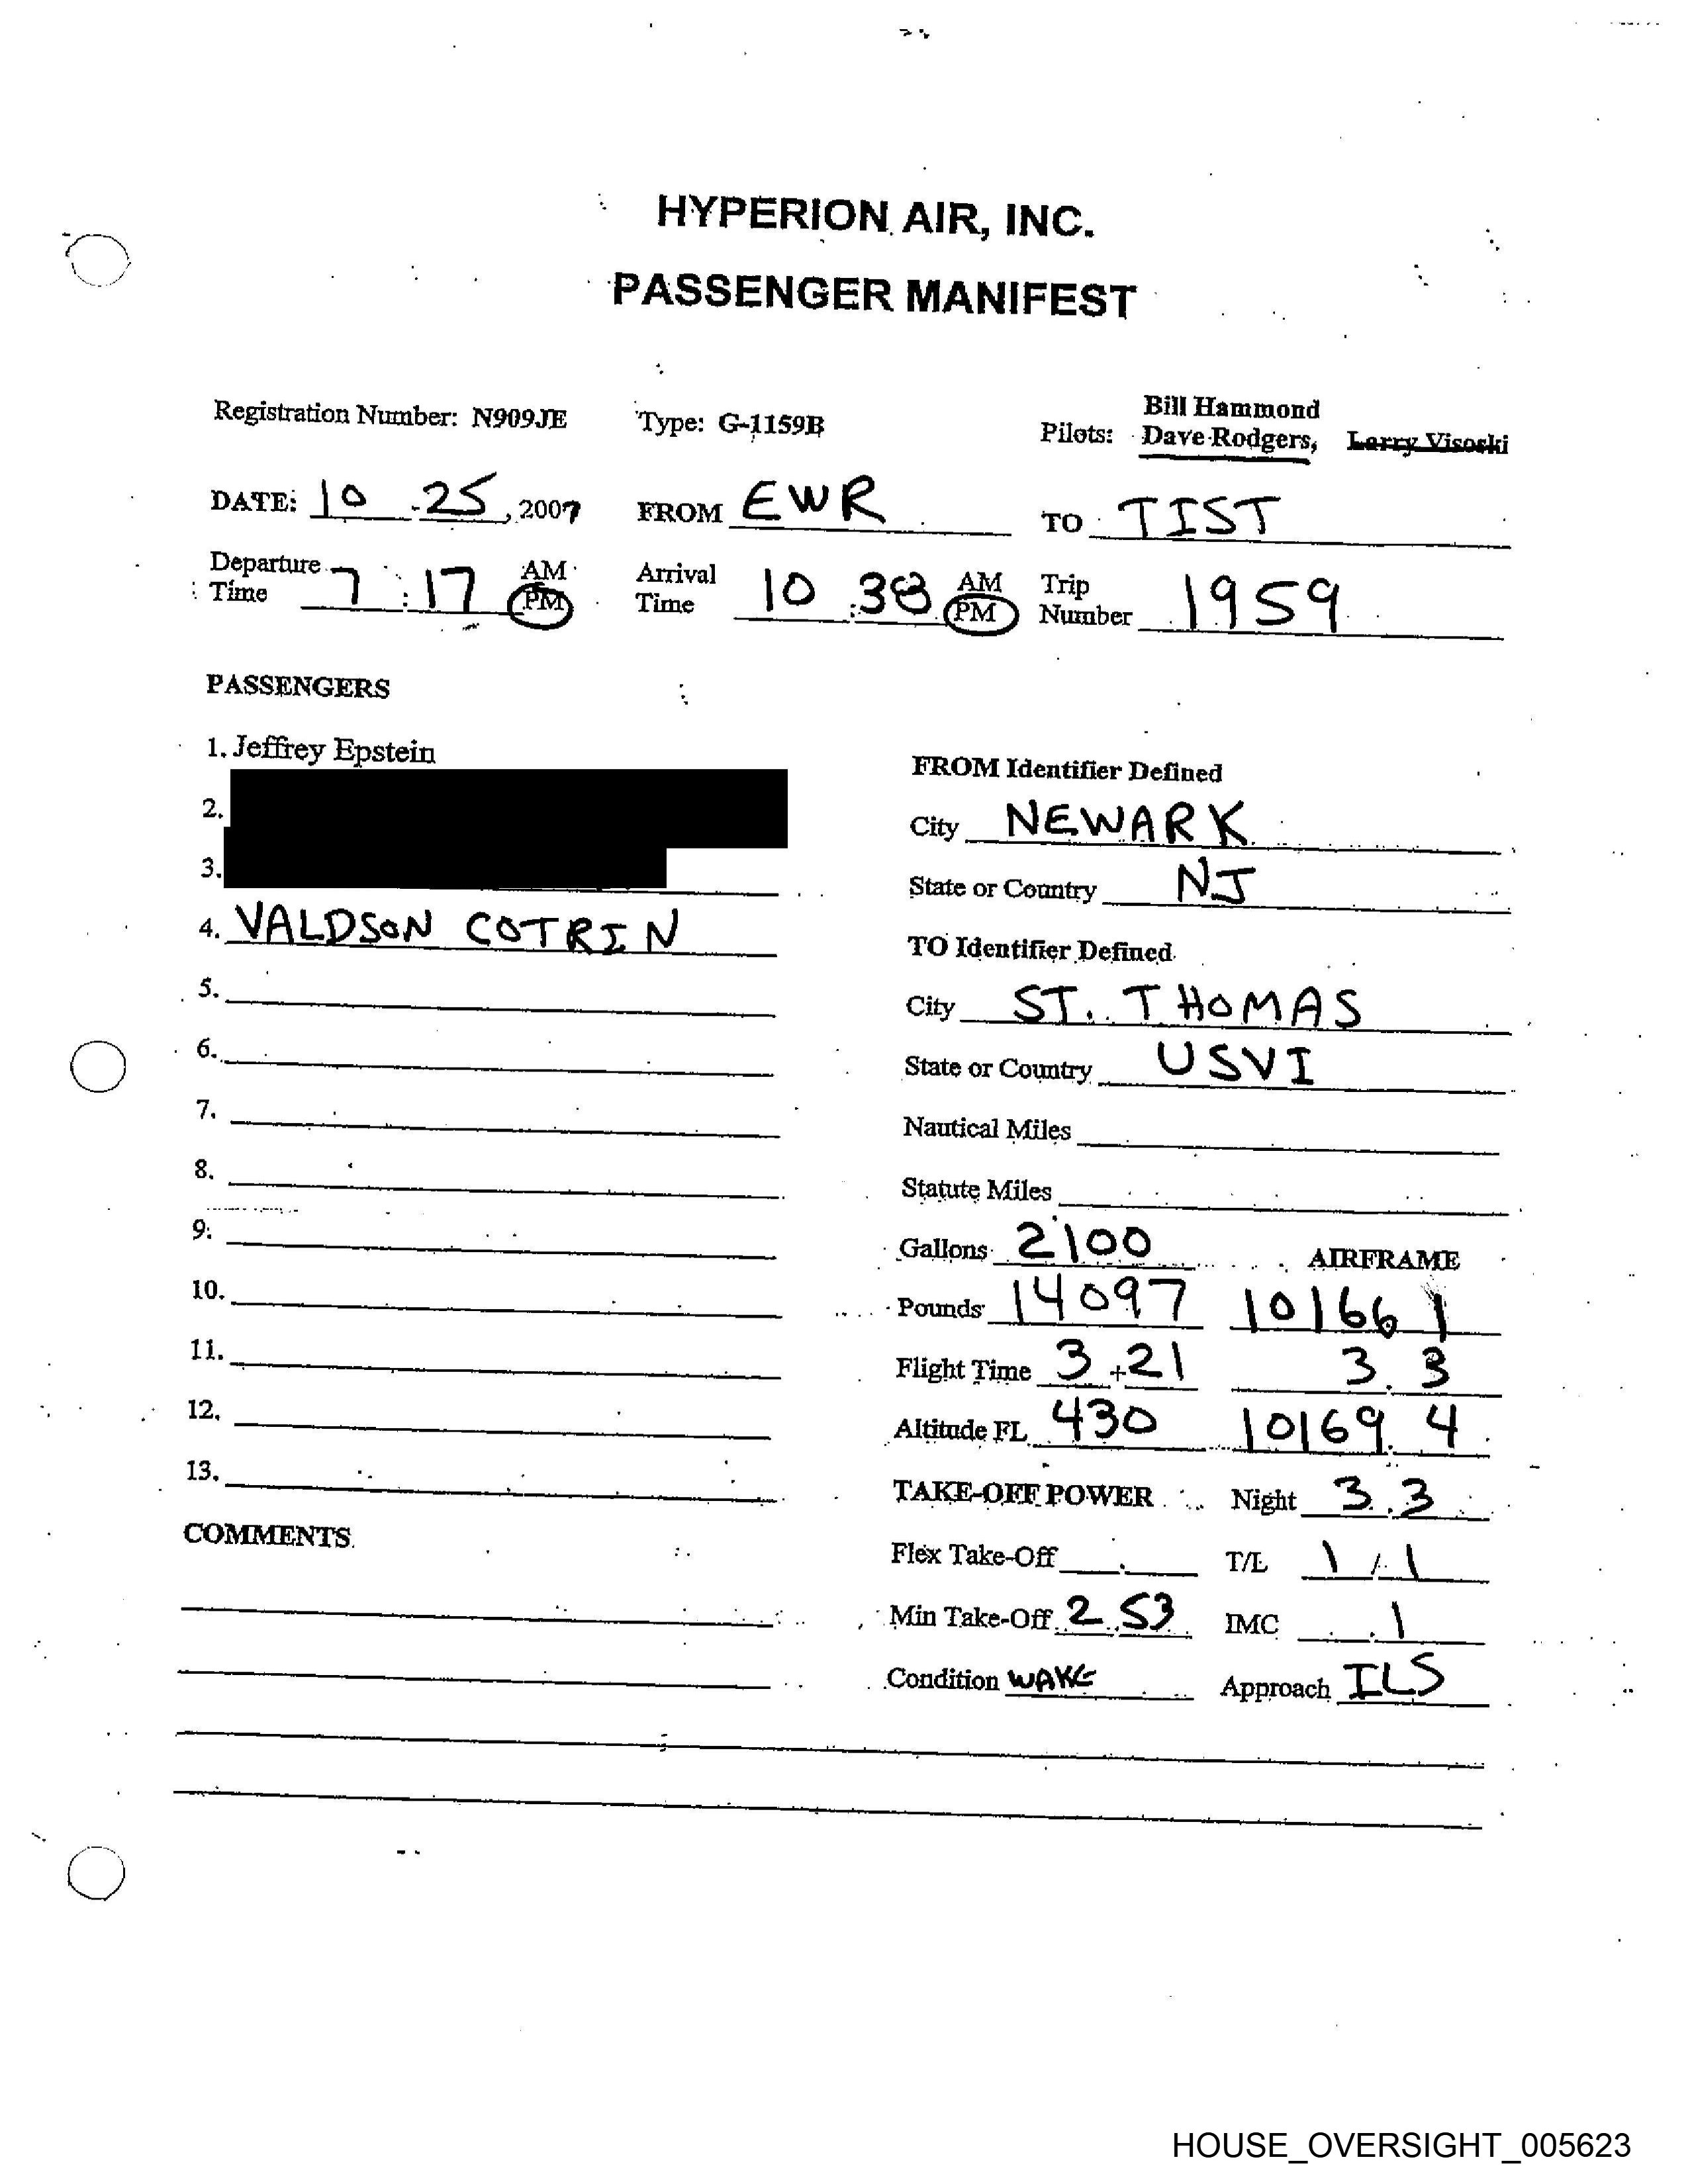 HYPERION AIR, INC.
PASSENGER MANIFEST
Registration Number: N909JE Type: G-1159B Pilots: Bill Hammond
Dave Rodgers, Larry Visoski
DATE: 10 - 25, 2007 FROM EWR TO TIST
Departure Time 7:17 AM PM Arrival Time 10:38 AM PM Trip Number 1959
PASSENGERS
1. Jeffrey Epstein
2.
3.
4. VALDSON COTRIN
5.
6.
7.
8.
9.
10.
11.
12.
13.
COMMENTS
FROM Identifier Defined
City NEWARK
State or Country NJ
TO Identifier Defined
City ST. THOMAS
State or Country USVI
Nautical Miles
Statute Miles
Gallons 2100 AIRFRAME
Pounds 14097 10166 1
Flight Time 3+21 3.3
Altitude FL 430 10169.4
TAKE-OFF POWER Night 3.3
Flex Take-Off . T/L 1/1
Min Take-Off 2.53 IMC .1
Condition WAKE Approach ILS
HOUSE_OVERSIGHT_005623